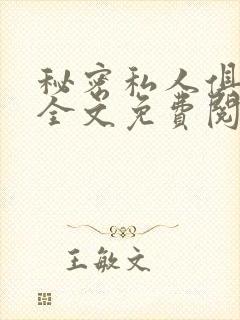 秘密私人俱
全文免費閱
王敏文